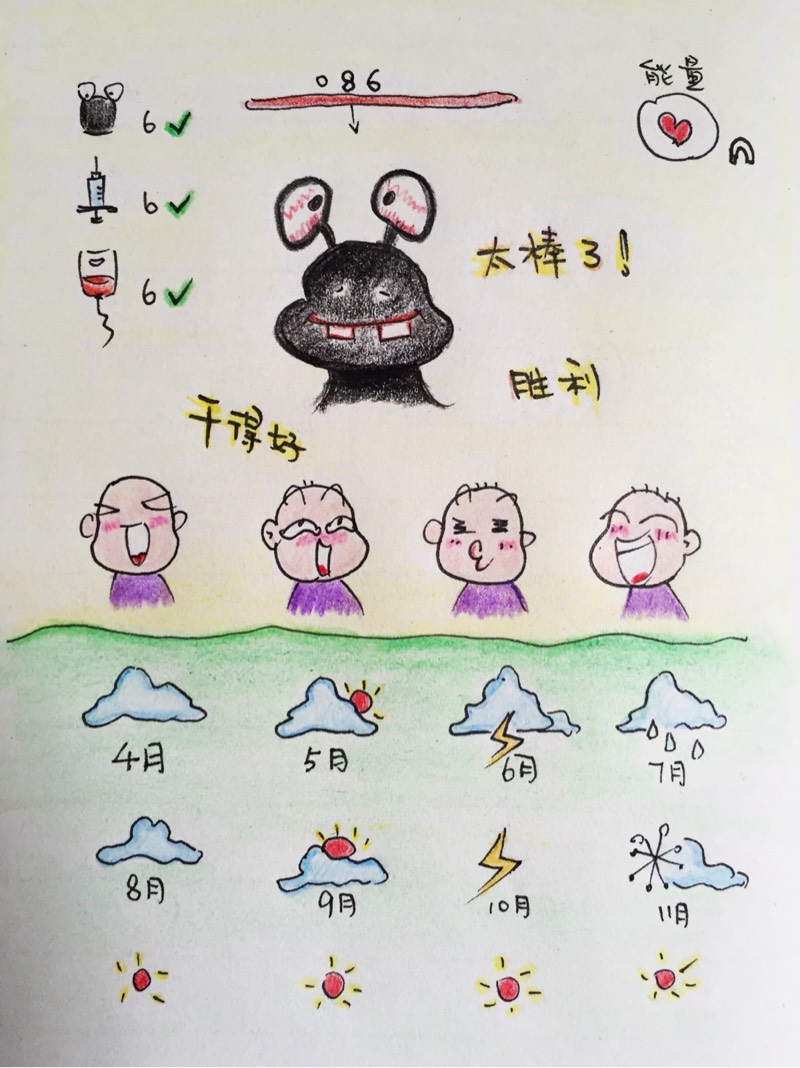 086
能量
6
6
6
太棒了!
胜利
干得好
4月
5月
6月
7月
8月
9月
10月
11月